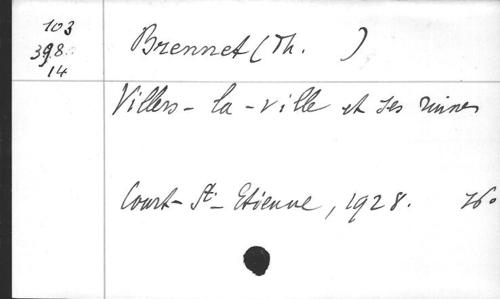 103
398
14
Brennet (Th. )
Villers-la-ville et ses ruines
Court-St-Etienne, 1928. 16°